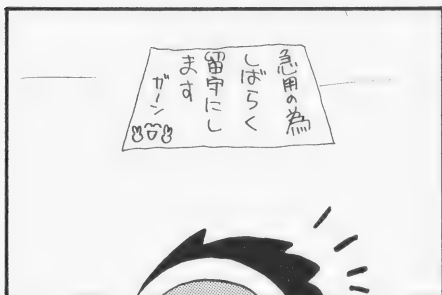 急用の為
しばらく
留守にし
ます
ガーン